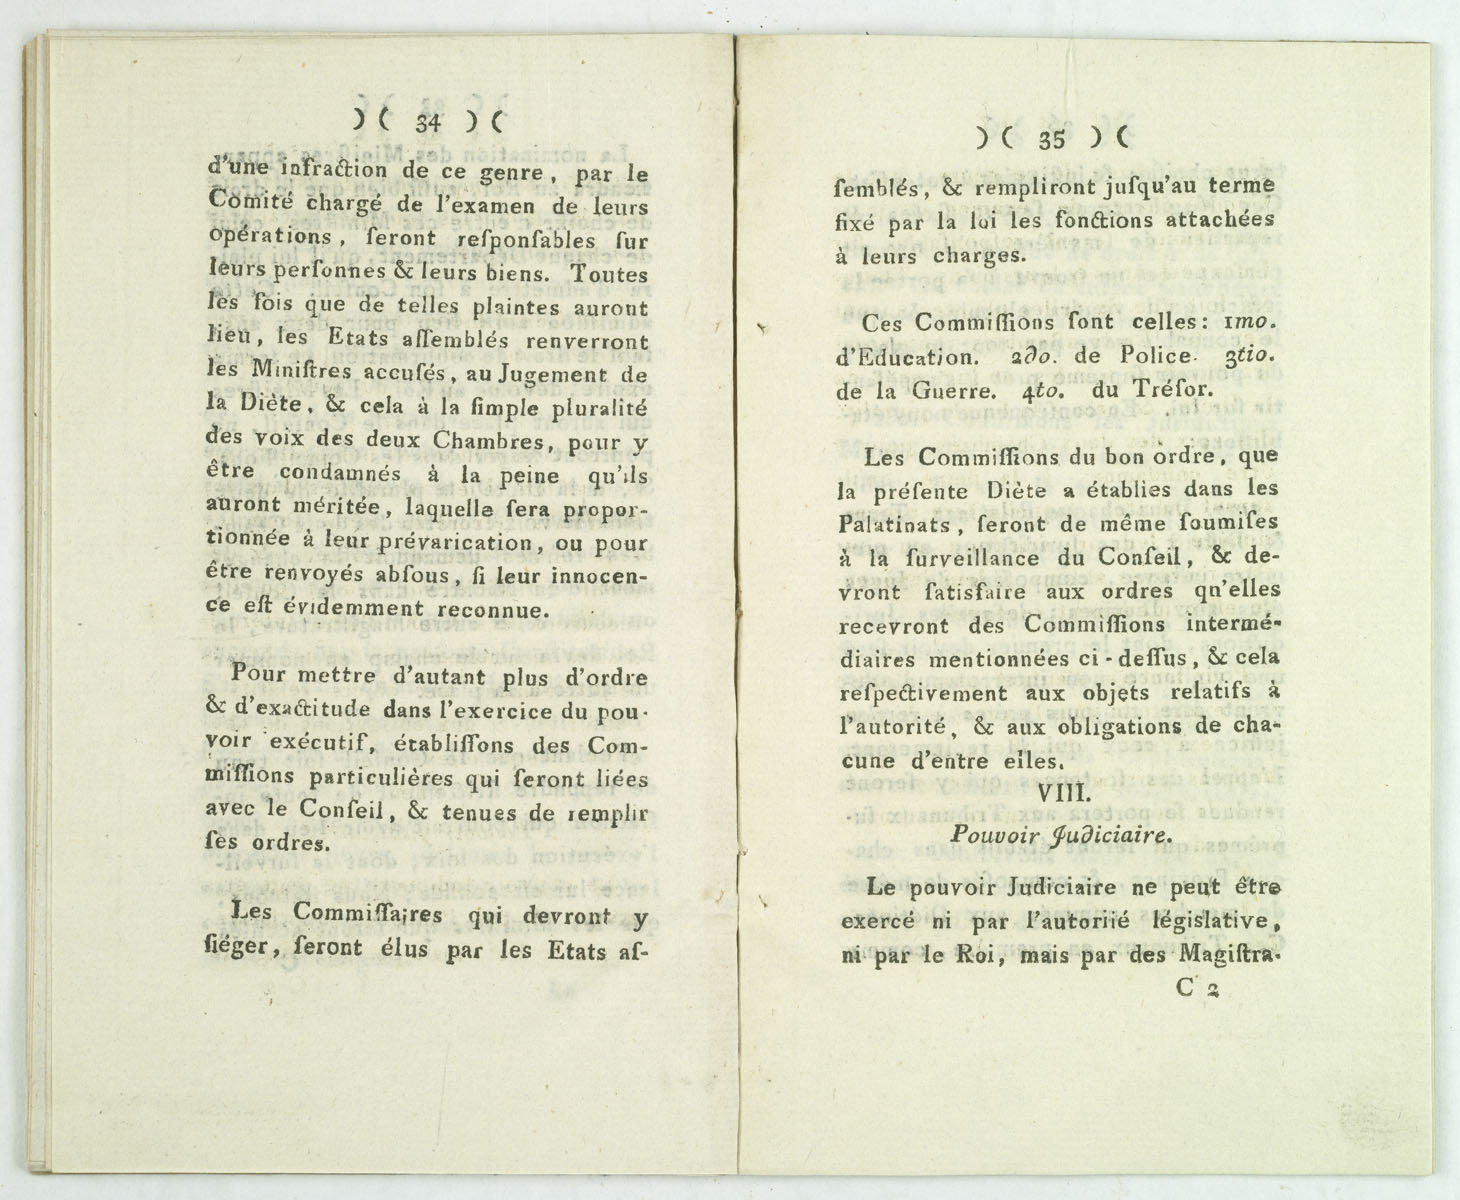 )( 34 )(
d'une infraction de ce genre, par le
Comité chargé de l'examen de leurs
opérations, ſeront reſponſables ſur
leurs perſonnes & leurs biens. Toutes
les fois que de telles plaintes auront
lieu, les Etats aſſemblés renverront
les Miniſtres accuſés, au Jugement de
la Diète, & cela à la ſimple pluralité
des voix des deux Chambres, pour y
être condamnés à la peine qu'ils
auront méritée, laquelle ſera propor-
tionnée à leur prévarication, ou pour
être renvoyés abſous, ſi leur innocen-
ce eſt évidemment reconnue.
Pour mettre d'autant plus d'ordre
& d'exactitude dans l'exercice du pou-
voir exécutif, établiſſons des Com-
miſſions particulières qui ſeront liées
avec le Conſeil, & tenues de remplir
ſes ordres.
Les Commiſſaires qui devront y
ſiéger, ſeront élus par les Etats aſ-
)( 35 )(
ſemblés, & rempliront juſqu'au terme
fixé par la loi les fonctions attachées
à leurs charges.
Ces Commiſſions ſont celles: 1mo.
d'Education. 2do. de Police. 3tio.
de la Guerre. 4to. du Tréſor.
Les Commiſſions du bon ordre, que
la préſente Diète a établies dans les
Palatinats, ſeront de même ſoumiſes
à la ſurveillance du Conſeil, & de-
vront ſatisfaire aux ordres qu'elles
recevront des Commiſſions intermé-
diaires mentionnées ci-deſſus, & cela
reſpectivement aux objets relatifs à
l'autorité, & aux obligations de cha-
cune d'entre elles.
VIII.
Pouvoir Judiciaire.
Le pouvoir Judiciaire ne peut être
exercé ni par l'autorité législative,
ni par le Roi, mais par des Magiſtra-
C 2